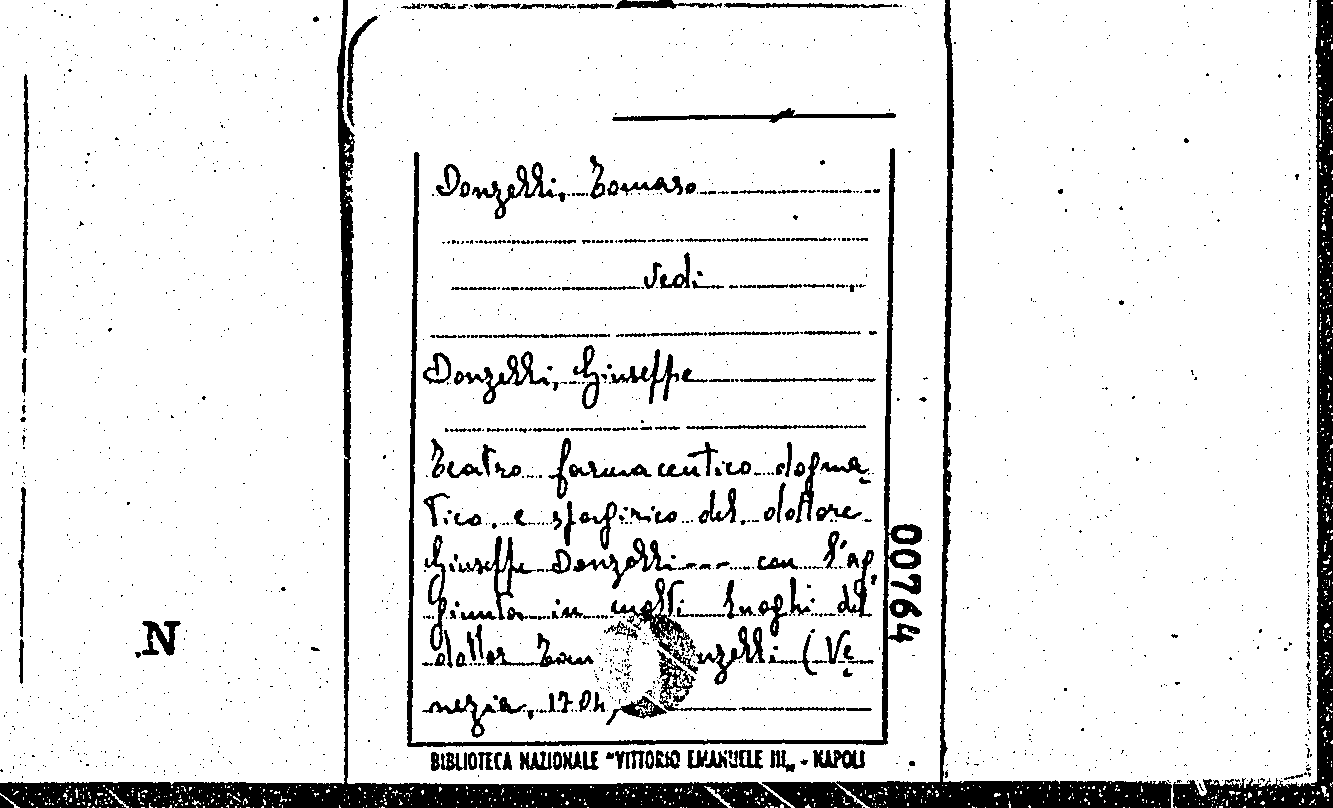 Donzelli, Tomaso
vedi
Donzelli, Giuseppe
Teatro farmaceutico dogma
tico, e spagirico del dottore
Giuseppe Donzelli --- con l'ag
giunta in molti luoghi del
dottor Tom nzelli (Ve
nezia, 1704)
BIBLIOTECA NAZIONALE "VITTORIO EMANUELE III„ - NAPOLI
00764
N